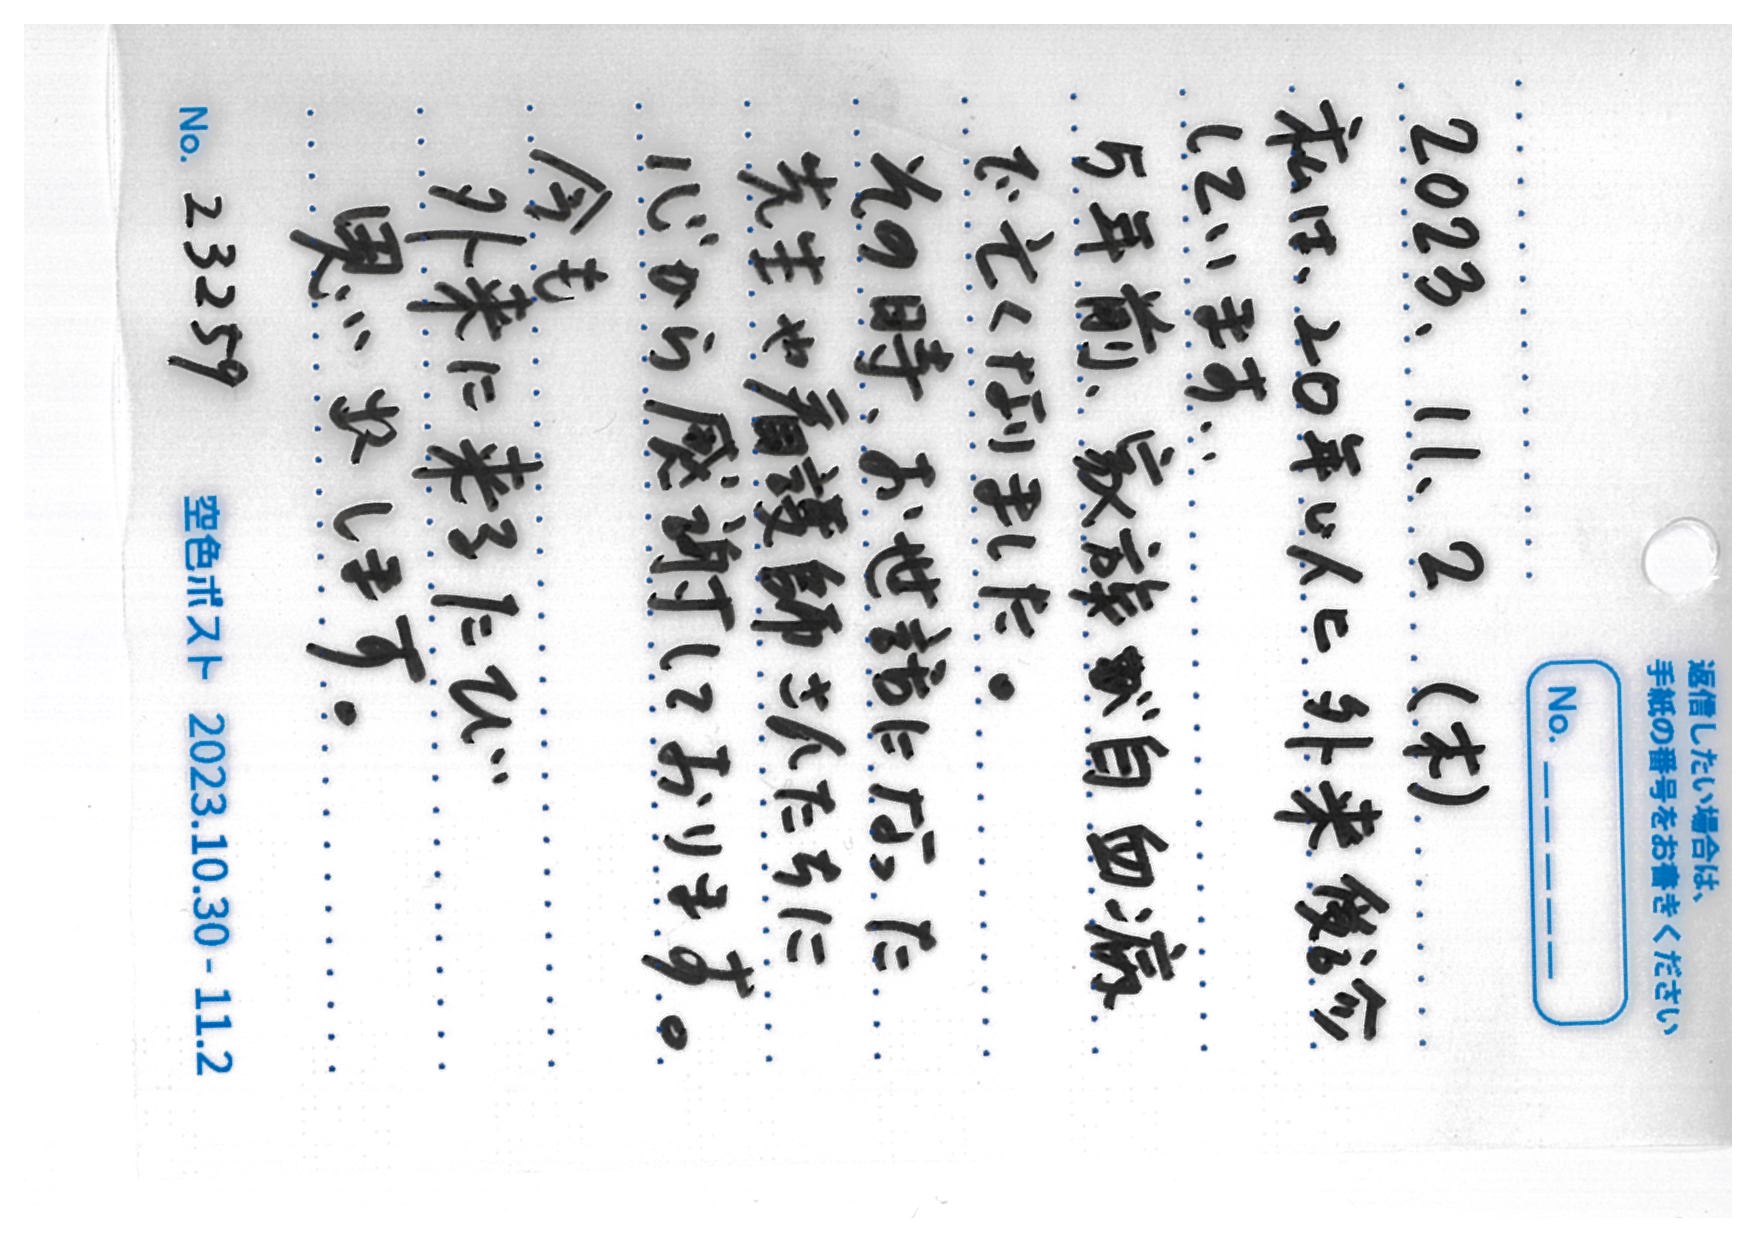 返信したい場合は、
手紙の番号をお書きください
No. _ _ _ _ _
2023、11、2 (木)
私は、20年以上 外来 診
しています..
5年前、家族が白血病
で亡くなりました。
その時、お世話になった
先生や看護師さんたちに
心から感謝しております。
今も
外来に来るたび
思い出します。
No. 23259
空色ポスト 2023.10.30 - 11.2